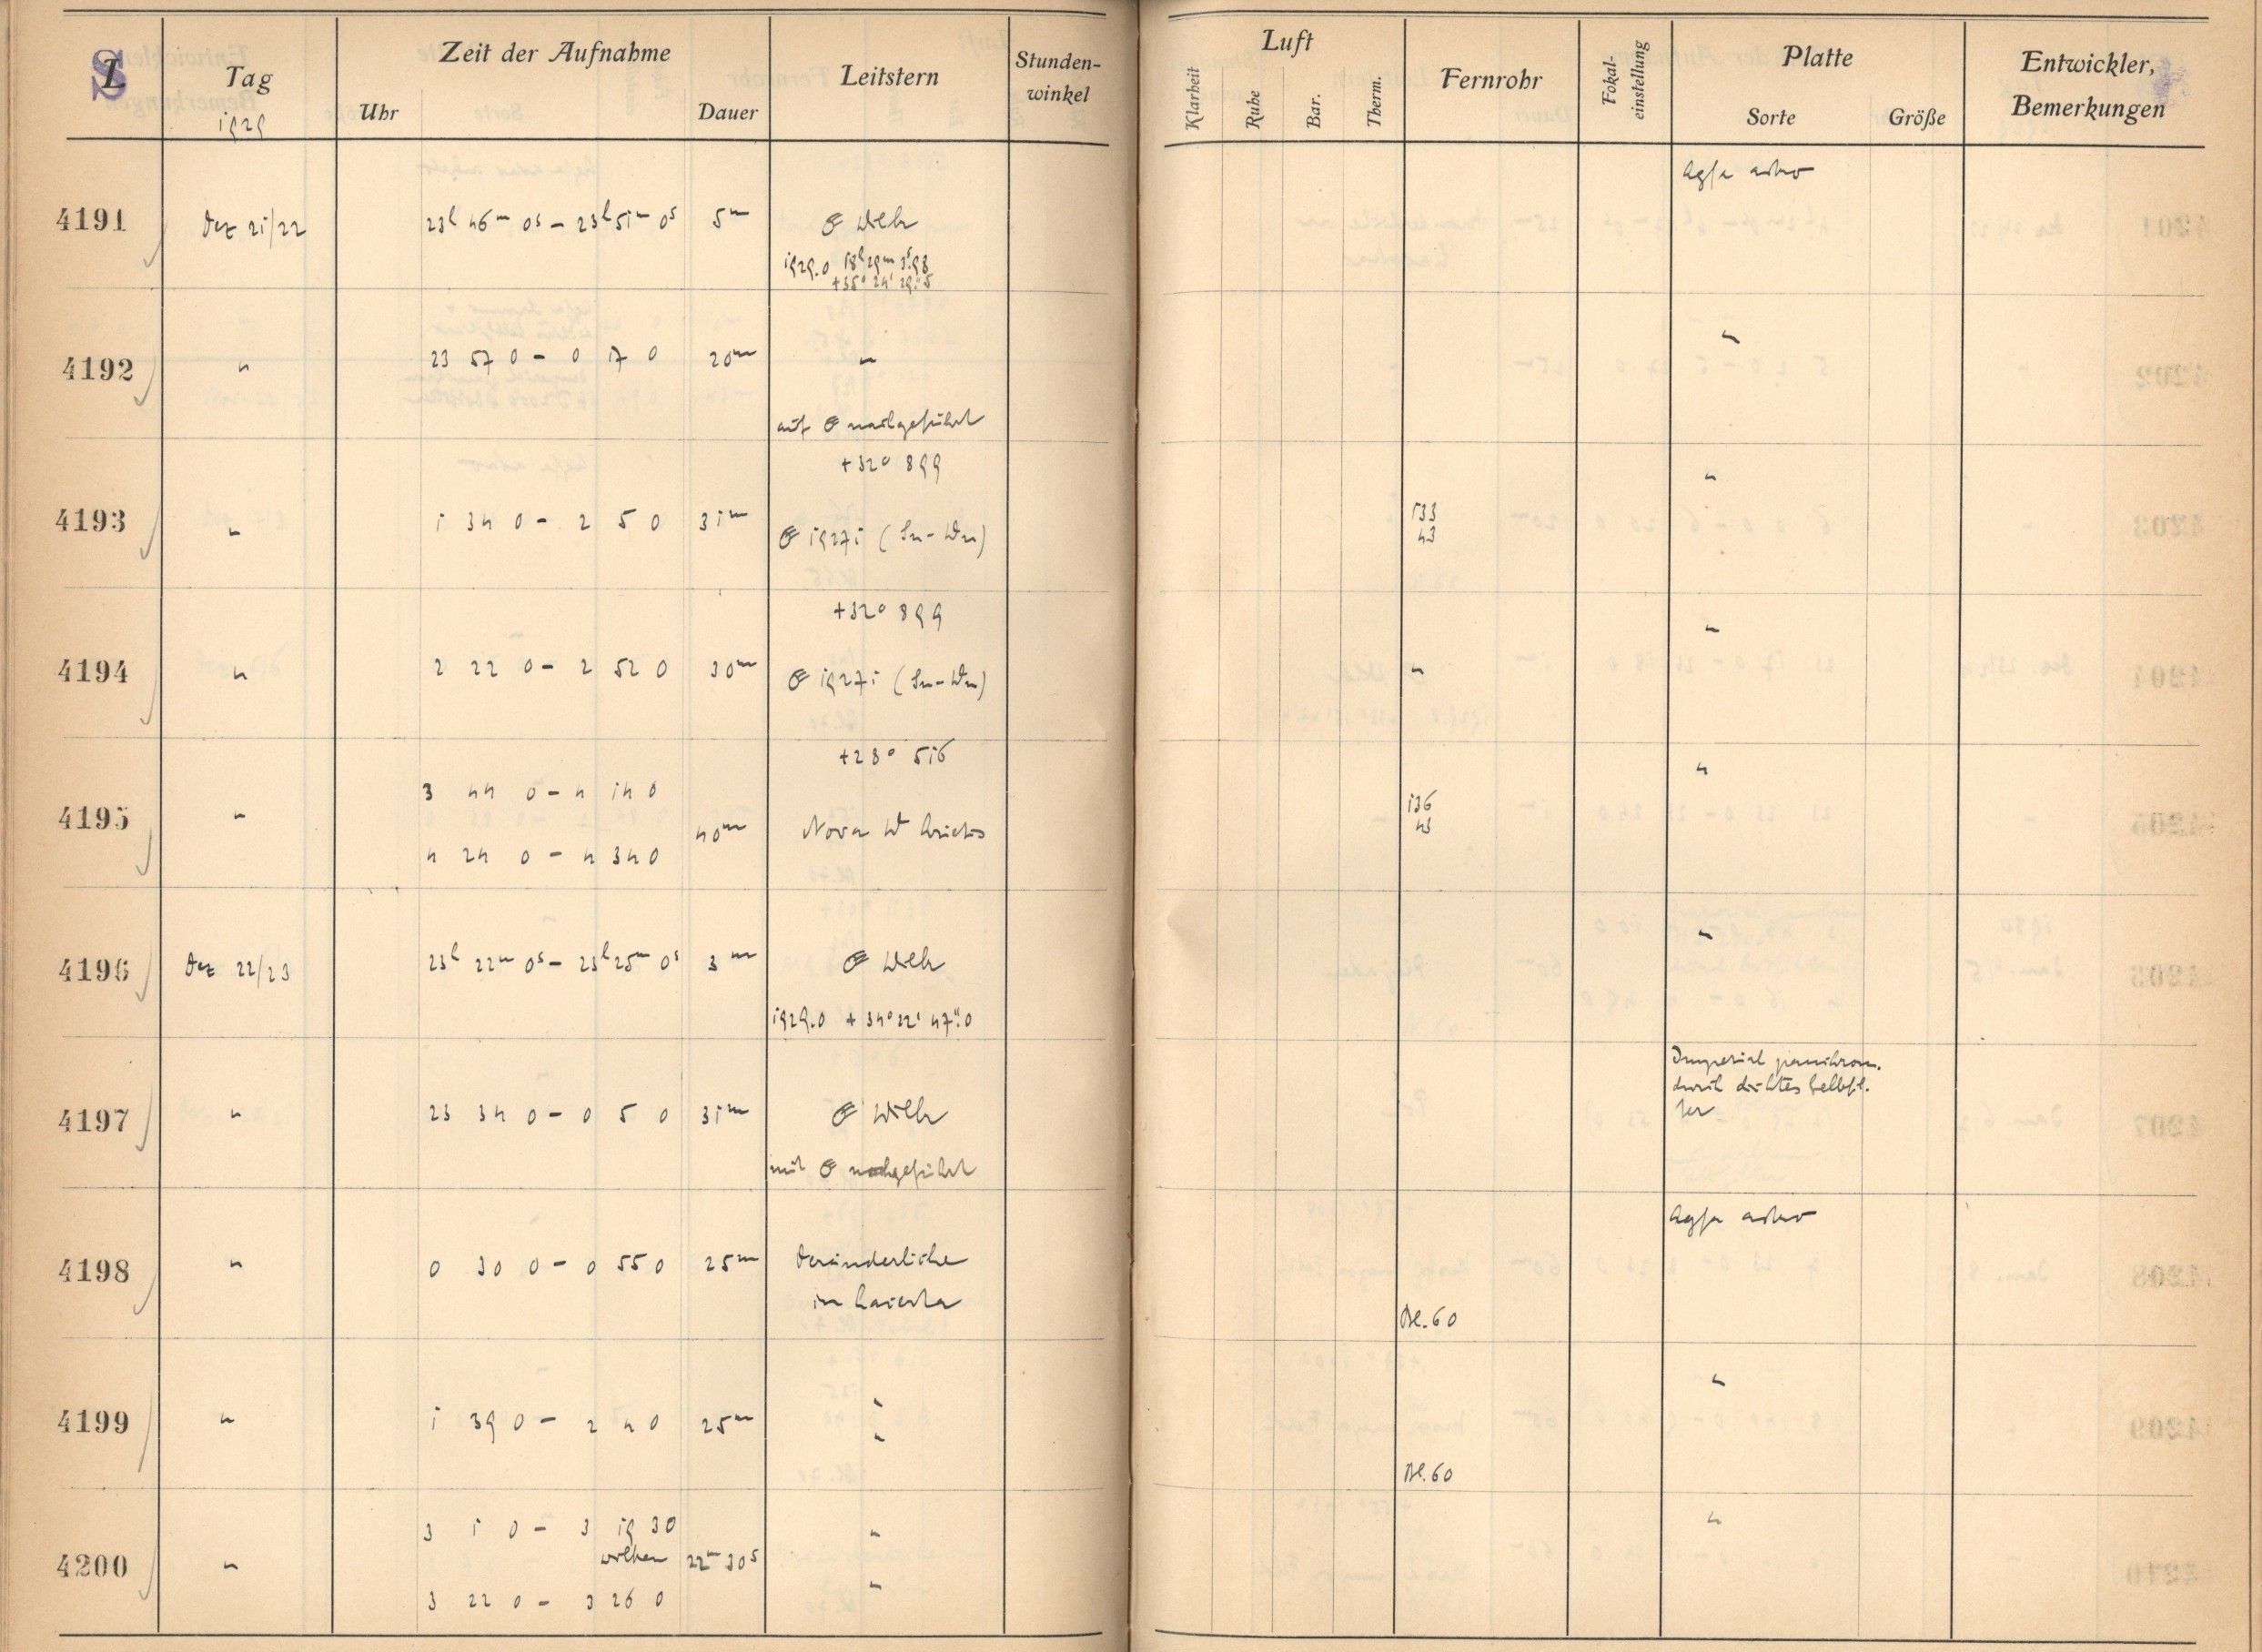 S
L
Tag
1929
Zeit der Aufnahme
Uhr
Dauer
Leitstern
Stunden-
winkel
Luft
Klarheit
Ruhe
Bar.
Therm.
Fernrohr
Fokal-
einstellung
Platte
Sorte
Größe
Entwickler,
Bemerkungen
Agfa astro
4191 Dez 21/22 23h 46m 0s – 23h 51m 0s 5m ☄ Wilk
1929.0 18h 29m 3s.93
+35° 24' 29".5
4192 " 23 57 0 – 0 17 0 20m " "
auf ☄ nachgeführt
+32° 899
4193 " 1 34 0 – 2 5 0 31m ☄ 1927i (Sn-Wn) 133 "
43
+32° 899
4194 " 2 22 0 – 2 52 0 30m ☄ 1927i (Sn-Wn) " "
+28° 516
3 44 0 – 4 14 0
4195 " 40m Nova W Arietis 136 "
43
4 24 0 – 4 34 0
4196 Dez 22/23 23h 22m 0s – 23h 25m 0s 3m ☄ Wilk "
1929.0 + 34° 22' 47".0
Imperial panchrom.
durch dichtes Gelbfil-
ter
4197 " 23 34 0 – 0 5 0 31m ☄ Wilk
mit ☄ nachgeführt
Agfa astro
4198 " 0 30 0 – 0 55 0 25m Veränderliche
in Lacerta
Bl. 60
4199 " 1 39 0 – 2 4 0 25m " "
"
Bl. 60
3 1 0 – 3 19 30 " "
4200 " Wolken 22m 30s
3 22 0 – 3 26 0 "